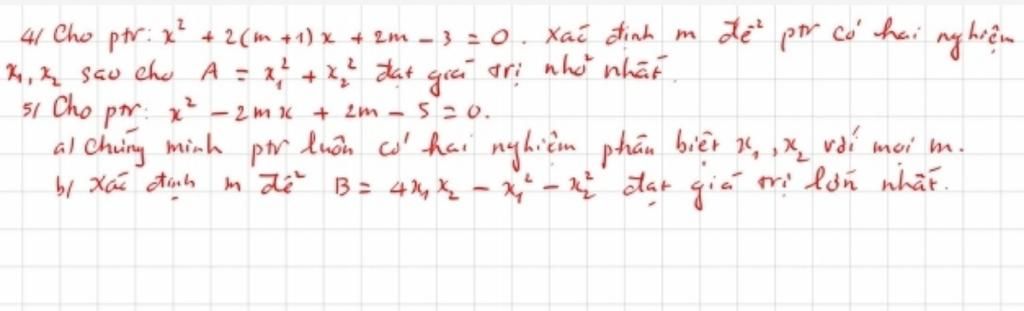 4/ Cho ptr: x² + 2(m+1)x + 2m - 3 = 0. Xác định m để ptr có hai nghiệm
x₁, x₂ sao cho A = x₁² + x₂² đạt giá trị nhỏ nhất.
5/ Cho ptr: x² - 2mx + 2m - 5 = 0.
a/ Chứng minh ptr luôn có hai nghiệm phân biệt x₁, x₂ với mọi m.
b/ Xác định m để B = 4x₁x₂ - x₁² - x₂² đạt giá trị lớn nhất.